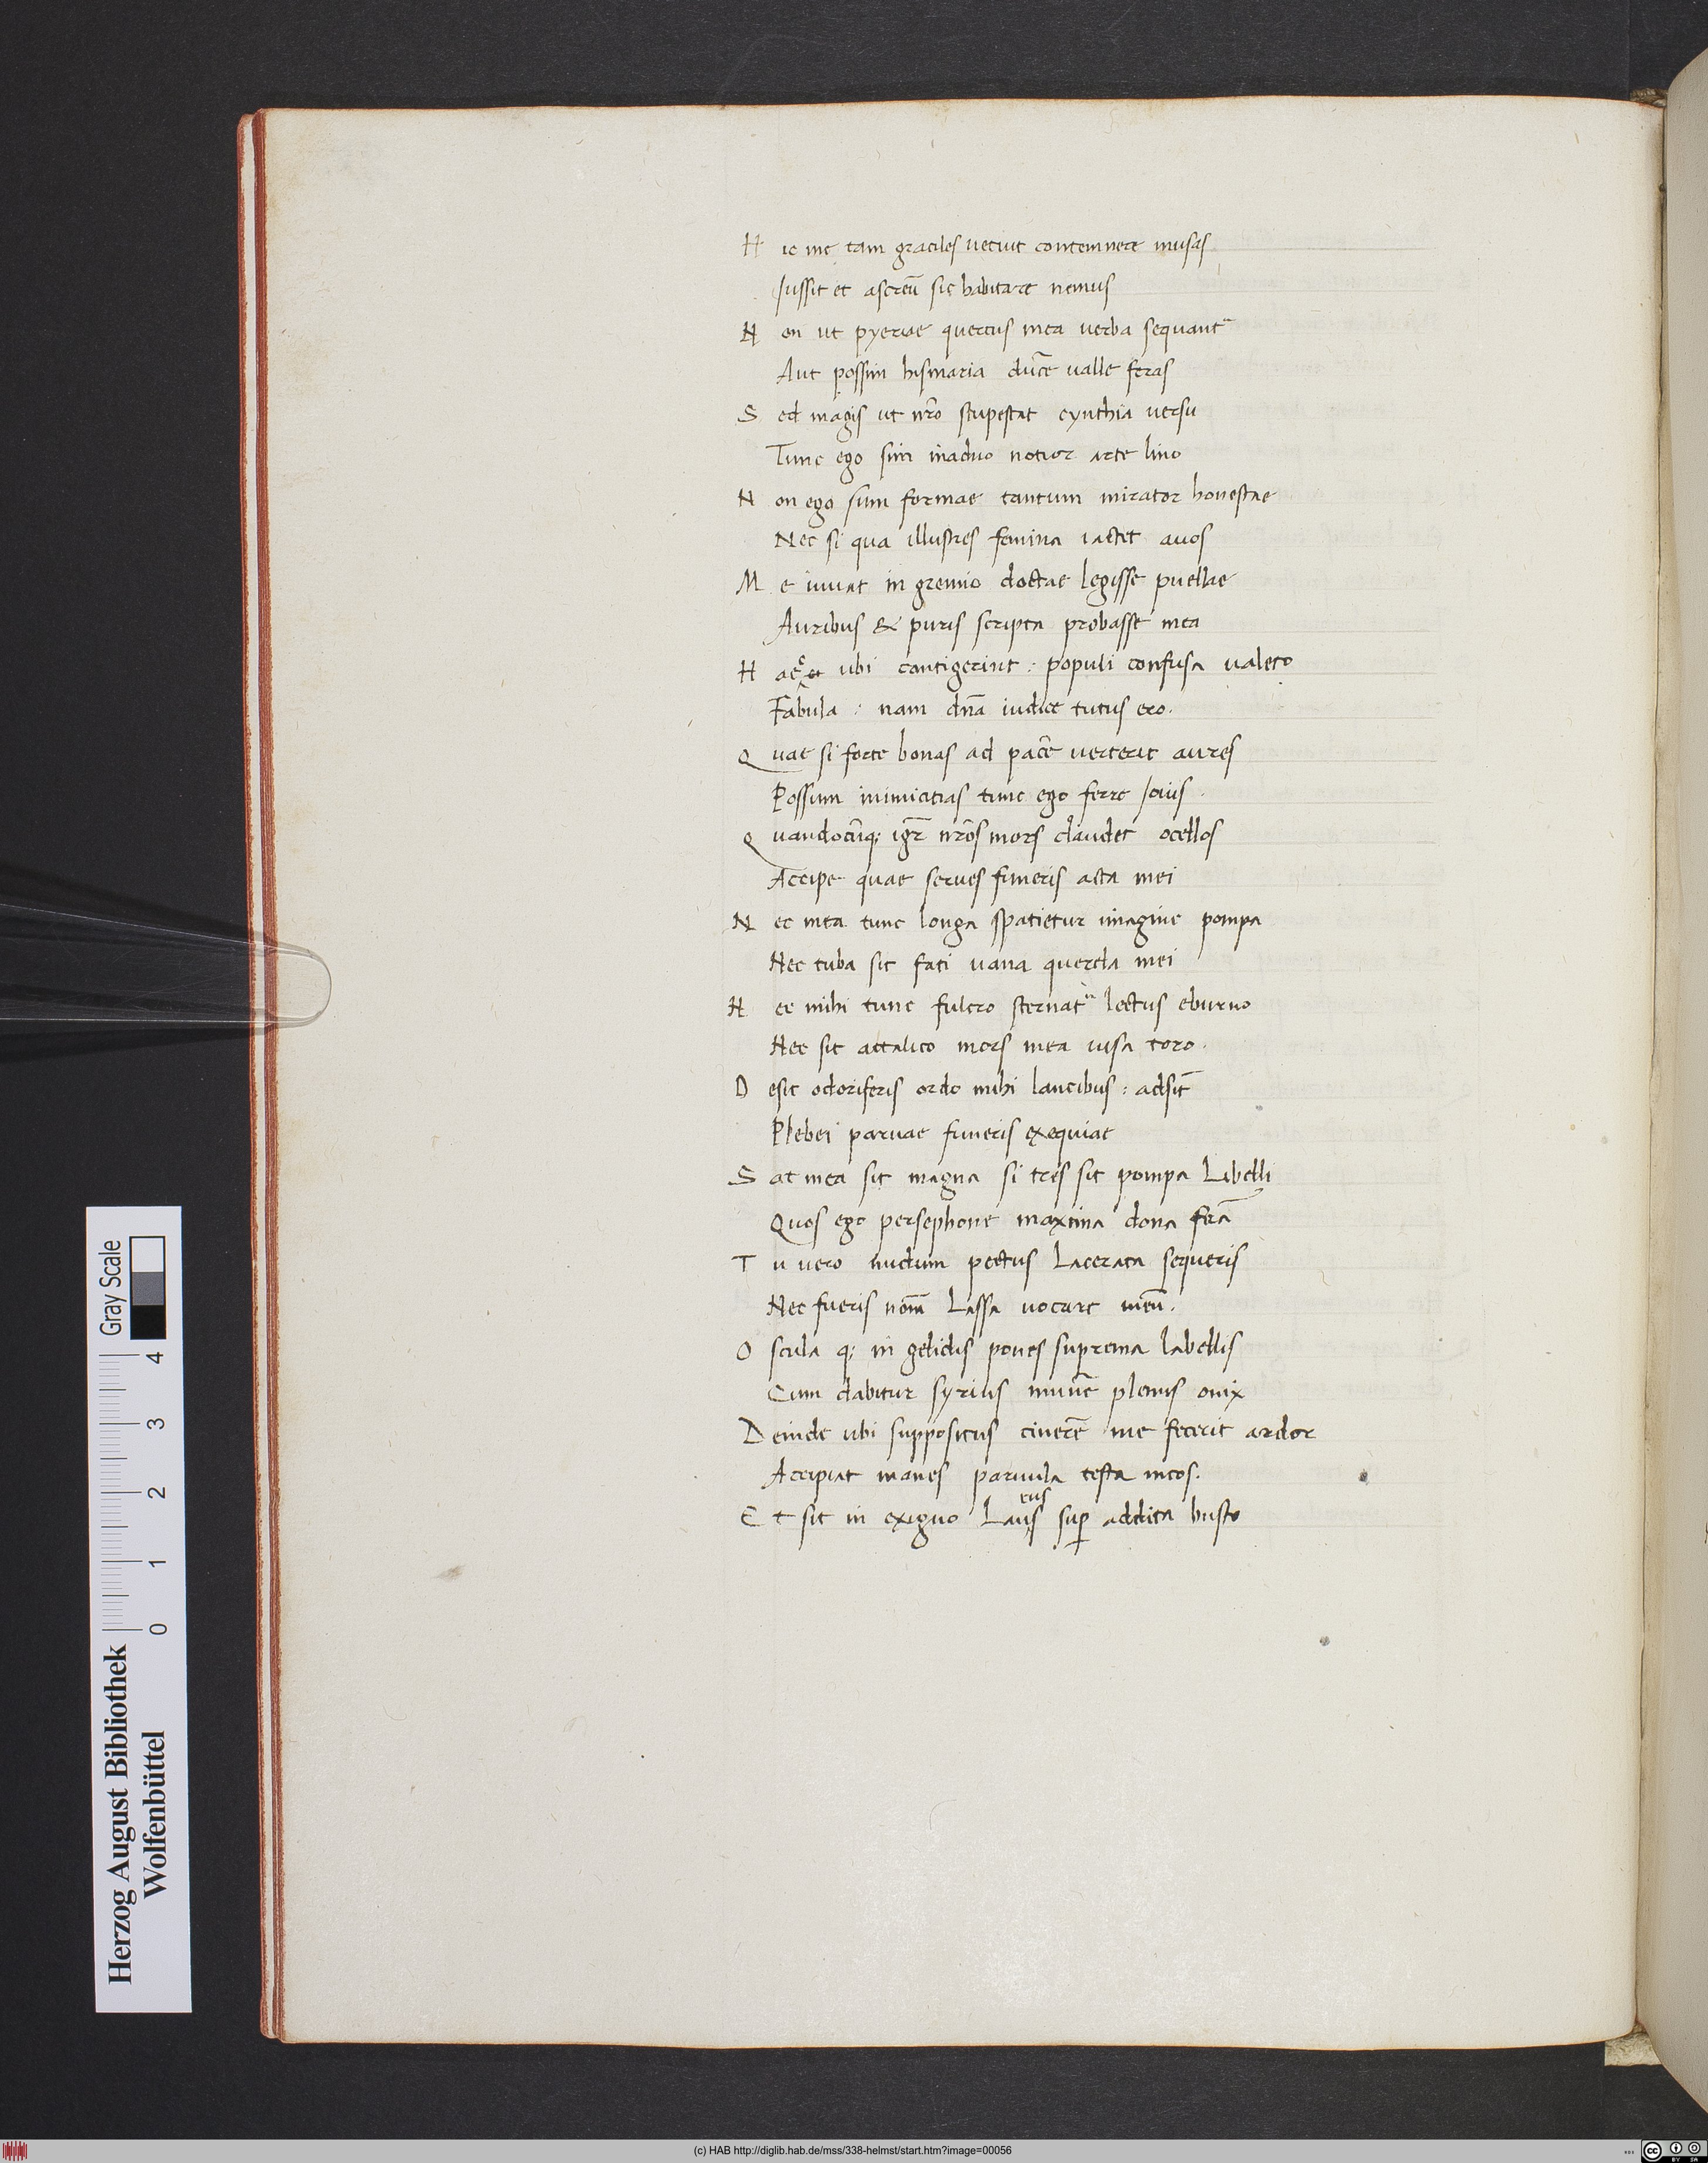 H ic me tam graciles vetuit contemnere musas
Jussit et ascreū sic habitare nemus
N on ut pyeriae quercus mea verba sequant᷑
Aut possim hismaria duc̄e valle feras
S ed magis ut nr̄o stupescat cynthia versu
Tunc ego sim inachio notior arte lino
N on ego sum formae tantum mirator honestae
Nec si qua illustres femina iactet avos
M e iuvat in gremio doctae legisse puellae
Auribus & puris scripta probasse mea
H aec ubi contigerint : populi confusa valeto
Fabula : nam dn̄a iudice tutus ero.
Q vae si forte bonas ad pacē verterit aures
Possum inimicitias tunc ego ferre Jovis.
Q vandocūq; igr̄ nr̄os mors claudet ocellos
Accipe quae serves funeris acta mei
N ec mea tunc longa spatietur imagine pompa
Nec tuba sit fati vana querela mei
N ec mihi tunc fulcro sternat᷑ lectus eburno
Nec sit attalico mors mea visa toro.
D esit odoriferis ordo mihi lancibus : adsīt
Plebei parvae funeris exequiae
S at mea sit magna si tres sit pompa Libelli
Quos ego persephone maxima dona ferā
T u vero nudum pectus Lacerata sequeris
Nec fueris nom̄ Lassa vocare meū.
O scula q; in gelidis pones suprema labellis
Cum dabitur syrius munē plenus onix
D einde ubi suppositus cinerē me fecerit ardor
Accipiat manes parvula testa meos.
eus
E t sit in exiguo Lavis suꝑ addita busto
Herzog August Bibliothek
Wolfenbüttel
0 1 2 3 4
Gray Scale
(c) HAB http://diglib.hab.de/mss/338-helmst/start.htm?image=00056
cc BY SA